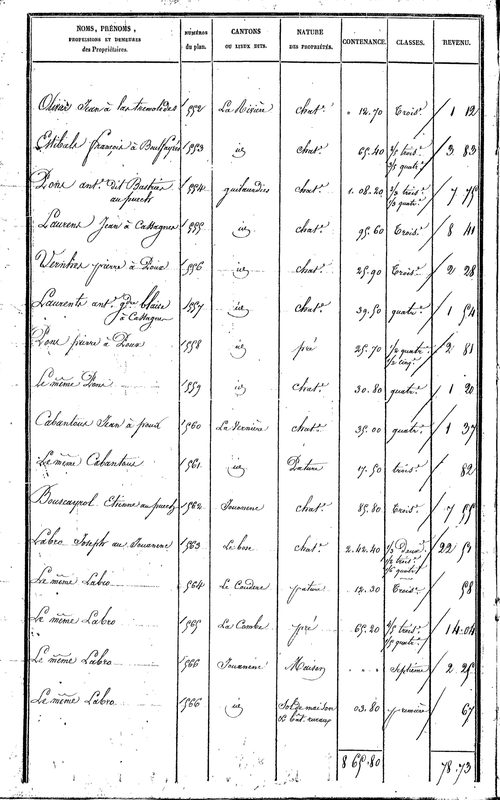 NOMS, PRÉNOMS, PROFESSIONS ET DEMEURES des Propriétaires. | NUMÉROS du plan. | CANTONS OU LIEUX DITS. | NATURE DES PROPRIÉTÉS. | CONTENANCE. | CLASSES. | REVENU.
Jean à | 1552 | La Rivière | chat. | 12.70 | Trois.e | 1 12
Estibals françois à | 1553 | id | chat. | 65.40 | trois.e quatr.e | 3 83
ant. dit au puech | 1554 | | chat. | 1.08.20 | trois.e quatr.e | 7 75
Laurens Jean à Cassagnes | 1555 | id | chat. | 95.60 | Trois.e | 8 41
pierre à | 1556 | id | chat. | 25.90 | Trois.e | 2 28
Laurens ant. blaise à Cassagnes | 1557 | id | chat. | 39.50 | quatr.e | 1 54
pierre à | 1558 | id | pré | 25.70 | 1/2 quatr.e 1/2 cinq.e | 2 81
Le même | 1559 | id | chat. | 30.80 | quatr.e | 1 20
Cabantous Jean à | 1560 | La | chat. | 35.00 | quatr.e | 1 37
Le même Cabantous | 1561 | id | Pature | 17.50 | trois.e | 82
Bouscayrol Etienne au puech | 1562 | | chat. | 85.80 | Trois.e | 7 55
Labro Joseph au | 1563 | Le bosc | chat. | 2.42.40 | deux.e trois.e quatr.e | 22 51
Le même Labro | 1564 | Le Couderc | pature | 12.30 | Trois.e | 58
Le même Labro | 1565 | La Combe | pré | 65.20 | trois.e quatr.e | 14.04
Le même Labro | 1566 | | Maison | | septième | 2 25
Le même Labro | 1566 | id | Sol de maison et bat. ruraux | 03.80 | première | 67
8 65.80 | 78.73